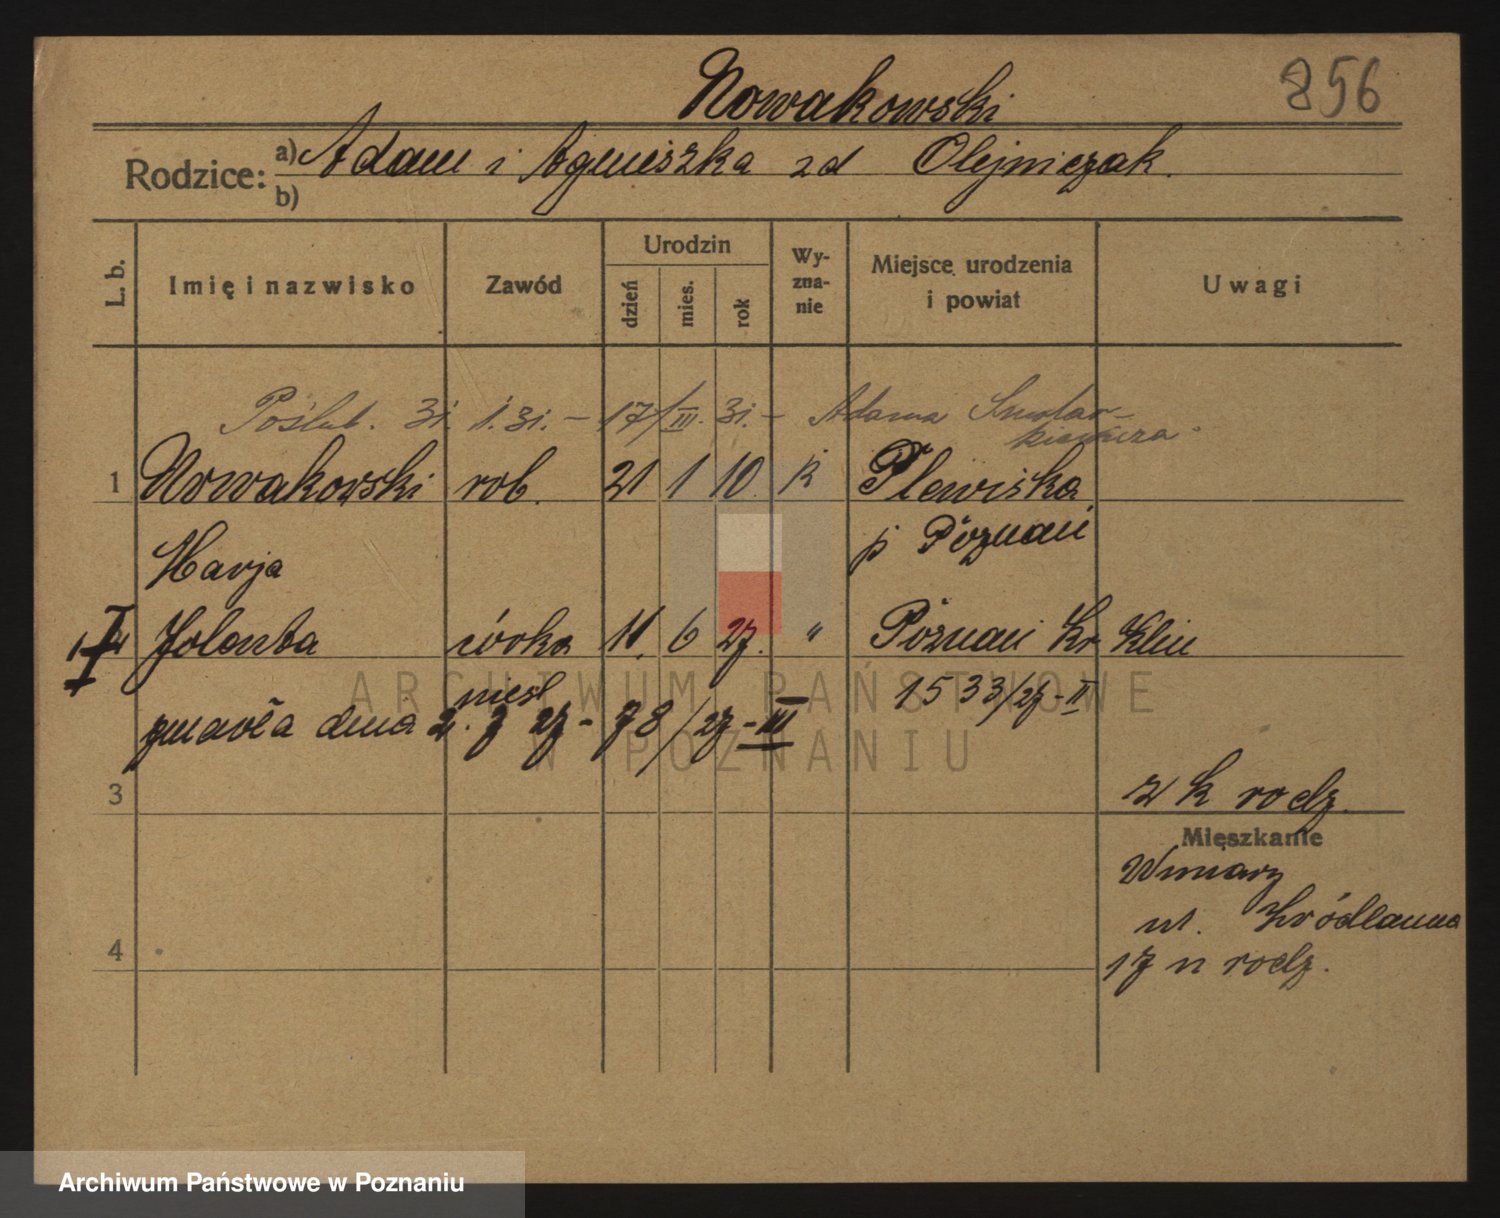 Nowakowski
856
Rodzice: a) Adam i Agnieszka zd Olejniczak.
b)
L. b.
Imię i nazwisko
Zawód
Urodzin
dzień
mies.
rok
Wy-
zna-
nie
Miejsce urodzenia
i powiat
Uwagi
Poślub. 31. 1. 31. – 17/III. 31. – Adama
1 Nowakowski rob. 21 1 10 k Plewiska
Marja p Poznań
Jolenta córka 11. 6 27. " Poznań Kr Klin
niesl 1533/27-II
zmarła dnia 2. 7 27 - 78/27-III
3
z k rodz.
Mieszkanie
Winiary
ul. Źródlanna
17 u rodz.
4
ARCHIWUM PAŃSTWOWE
W POZNANIU
Archiwum Państwowe w Poznaniu